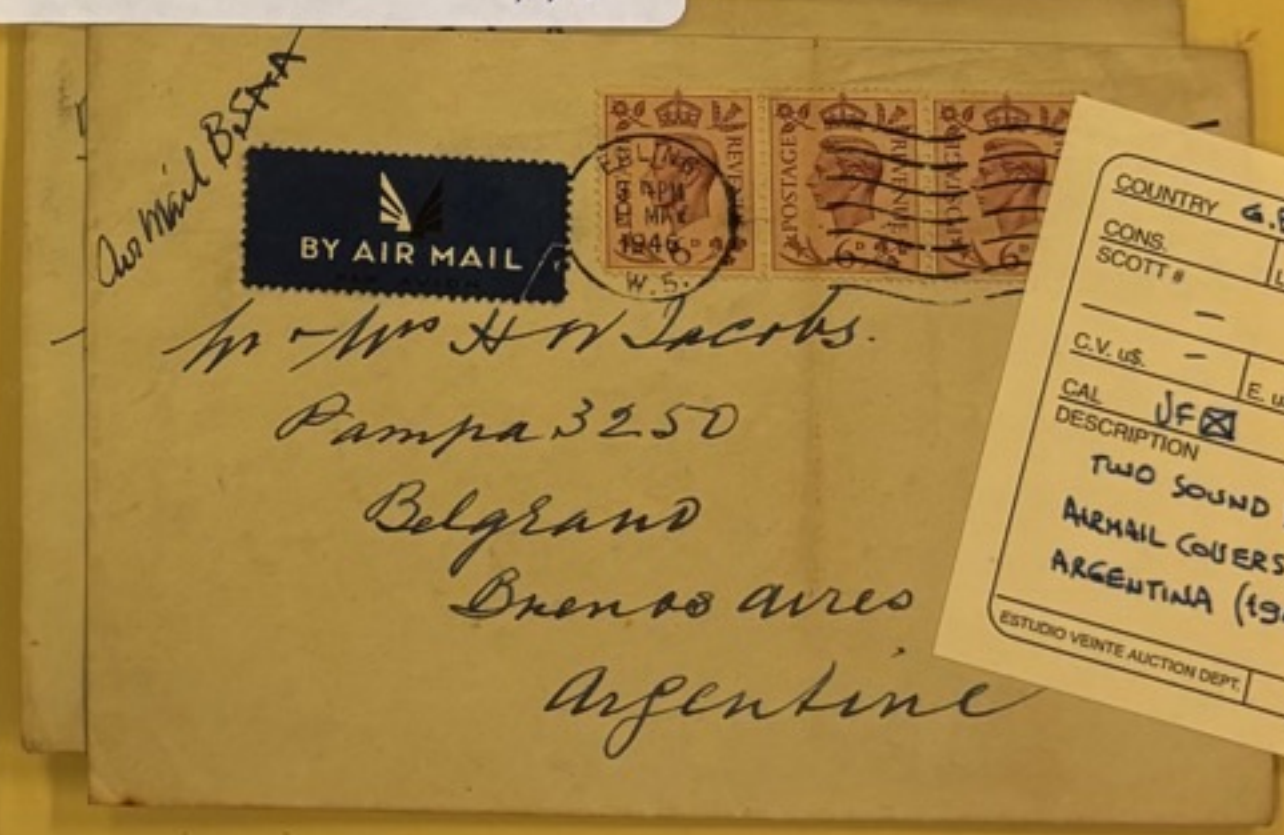 Air Mail B.S.A.A
BY AIR MAIL
PAR AVION
EALING
PM
MAY
1946
W.5.
REVENUE
6D
POSTAGE
REVENUE
6D
POSTAGE
6D
Mr & Mrs H W Jacobs.
Pampa 3250
Belgrano
Buenos Aires
Argentine
COUNTRY G.
CONS.
SCOTT #
-
C.V. u$. -
E. u
CAL VF
DESCRIPTION
TWO SOUND
AIRMAIL COVERS
ARGENTINA (19
ESTUDIO VEINTE AUCTION DEPT.